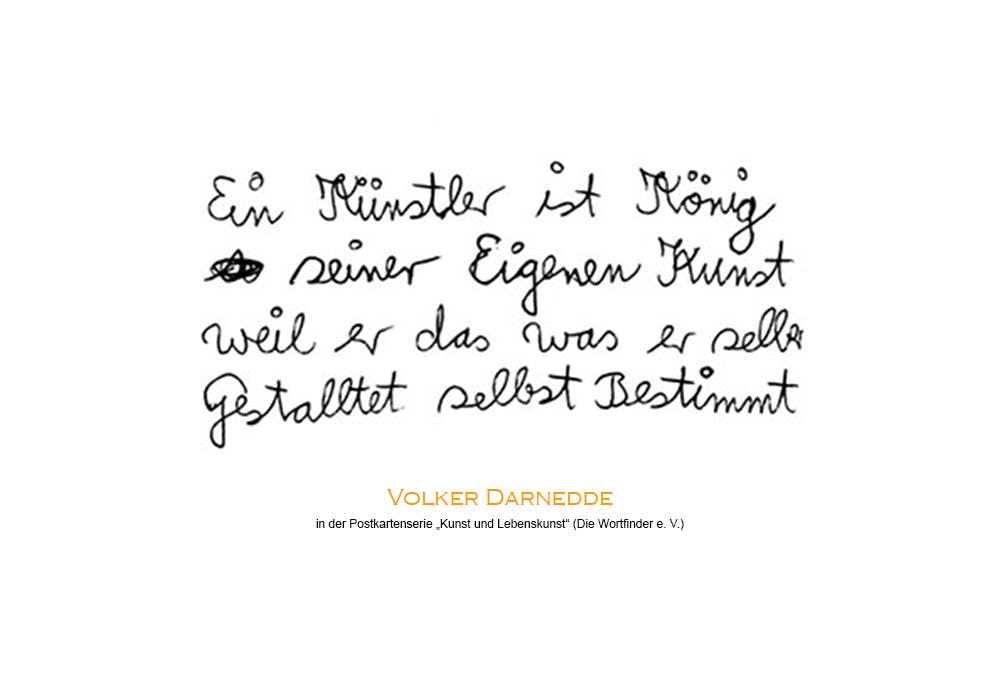 Ein Künstler ist König
seiner Eigenen Kunst
weil er das was er selbe
Gestalltet selbst Bestimmt
VOLKER DARNEDDE
in der Postkartenserie „Kunst und Lebenskunst“ (Die Wortfinder e. V.)